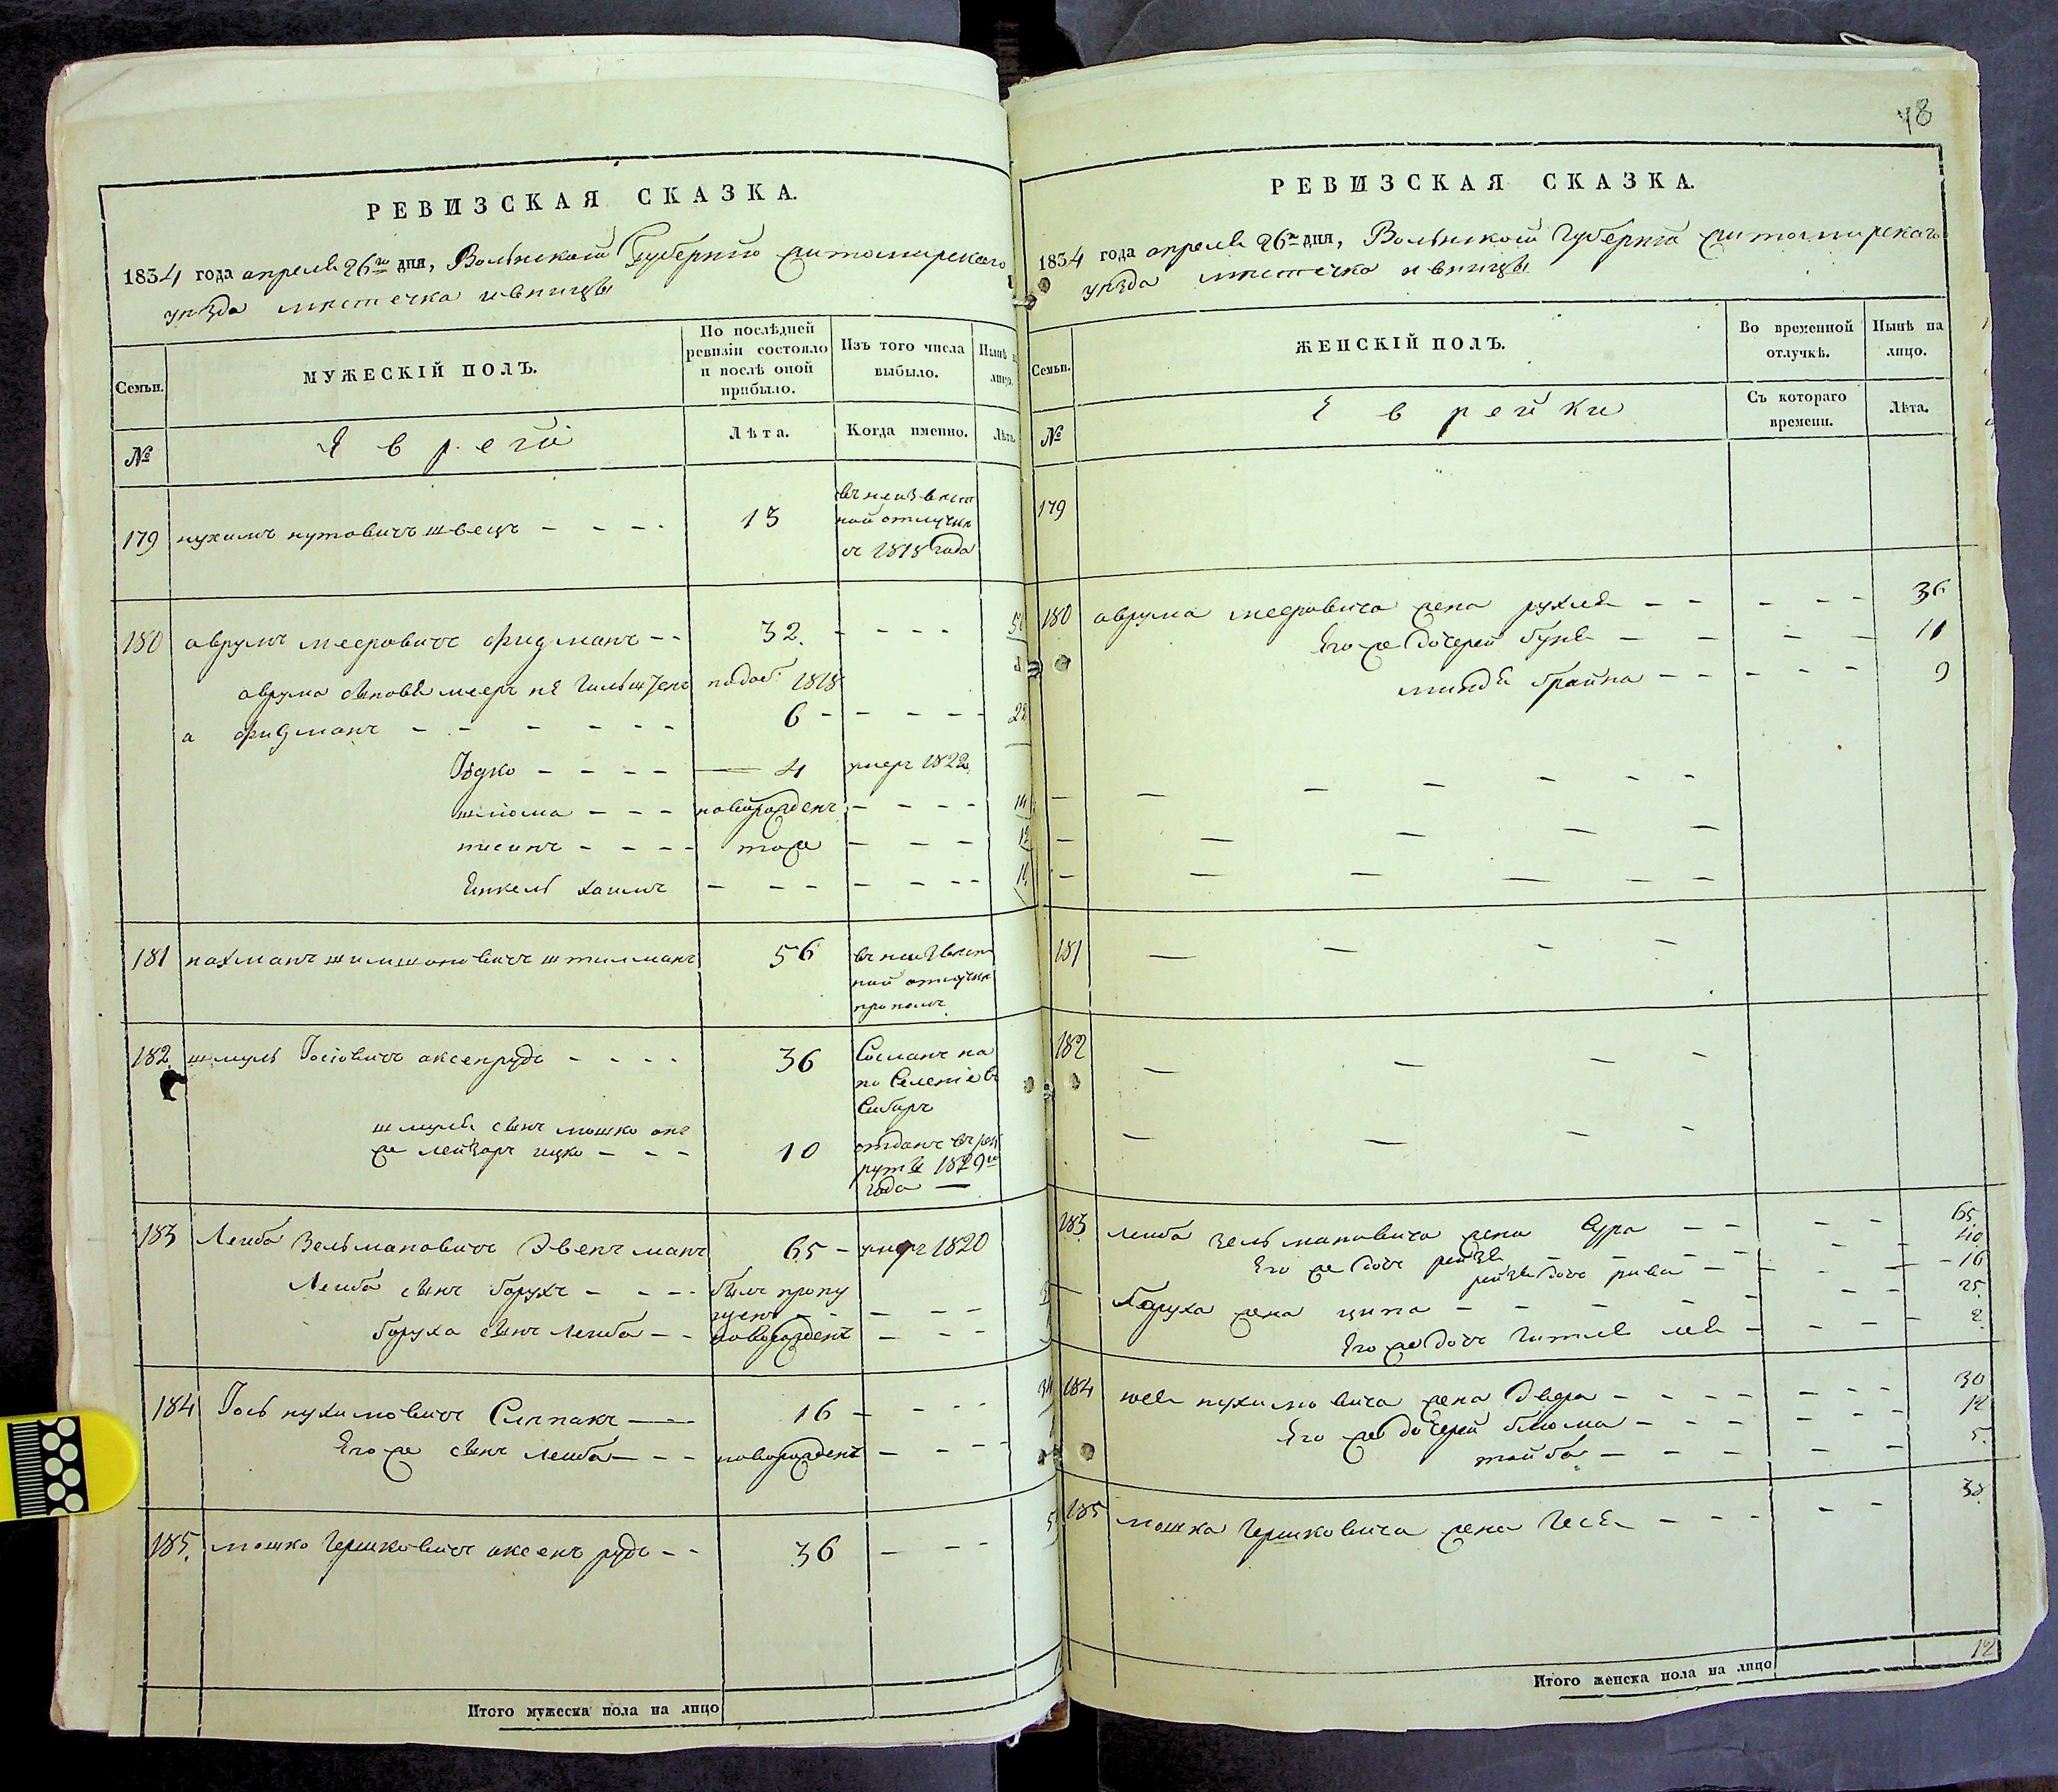 РЕВИЗСКАЯ СКАЗКА.
1834 года апреля 26го дня, Волынской Губернїи житомирского
уѣзда мѣстечка ивницы
Семьи.
МУЖЕСКІЙ ПОЛЪ.
По послѣдней
ревизіи состояло
и послѣ оной
прибыло.
Изъ того числа
выбыло.
Нынѣ
лицо.
№
Евреи
Лѣта.
Когда именно.
Лѣта.
179 нухимъ нутовичъ швецъ 13 въ неизвѣст
ной отлучкѣ
съ 1818 года
180 аврумъ мееровичъ фидманъ 32.
аврума сыновя мееръ подоб. 1818
а фидманъ 6 22
Іудко 4 умеръ 1822
шлїома новорожденъ
тоже
Янкель хаимъ
181 нахманъ шимшоновичъ штилманъ 56 въ неизвѣст
ной отлучкѣ
182 шмуль Іосіовичъ аксенрудъ 36 Сосланъ на
по Селеніе въ
Сибирь
шмуля сынъ мошко онъ
же лейзоръ ицко 10 отданъ въ рек
руты 1829го
года
183 Лейба Зельмановичъ 65 умеръ 1820
Лейба сынъ борухъ былъ пропу
щенъ
боруха сынъ лейба новорожденъ
184 Іось нухимовичъ Слѣпакъ 16
Его же сынъ лейба новорожденъ
185. мошко Гершковичъ аксенъ рудъ 36
Итого мужеска пола на лицо
48
РЕВИЗСКАЯ СКАЗКА.
1834 года апреля 26го дня, Волынской Губернїи житомирского
уѣзда мѣстечка ивницы
Семьи.
ЖЕНСКІЙ ПОЛЪ.
Во временной
отлучкѣ.
Нынѣ на
лицо.
№
Еврейки
Съ котораго
времени.
Лѣта.
179
180 аврума мееровича жена рухля 36
Его же дочерей буня 11
миндя брайна 9
181
182
183 лейба зельмановича жена Сура 65
Его же дочь рейзя 40
рейзи дочь рива 16
боруха жена ципа 25.
Его же дочь Гитля лея 2
184 нухимовича жена двора 30
Его же дочерей блюма 12
тойба 5.
185 мошка Гершковича жена Геся 38
Итого женска пола на лицо 12